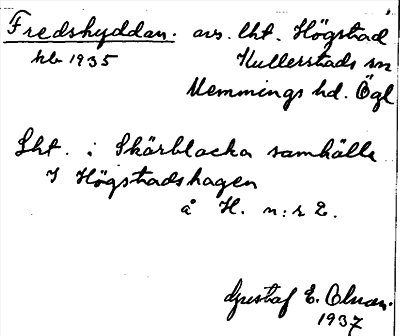 Fredshyddan. avs. lht. Högstad
kb 1935 Kullerstads sn
Memmings hd. Ögl
Lht. i Skärblacka samhälle
I Högstadshagen
å H. n:r 2.
Gustaf E.
1937